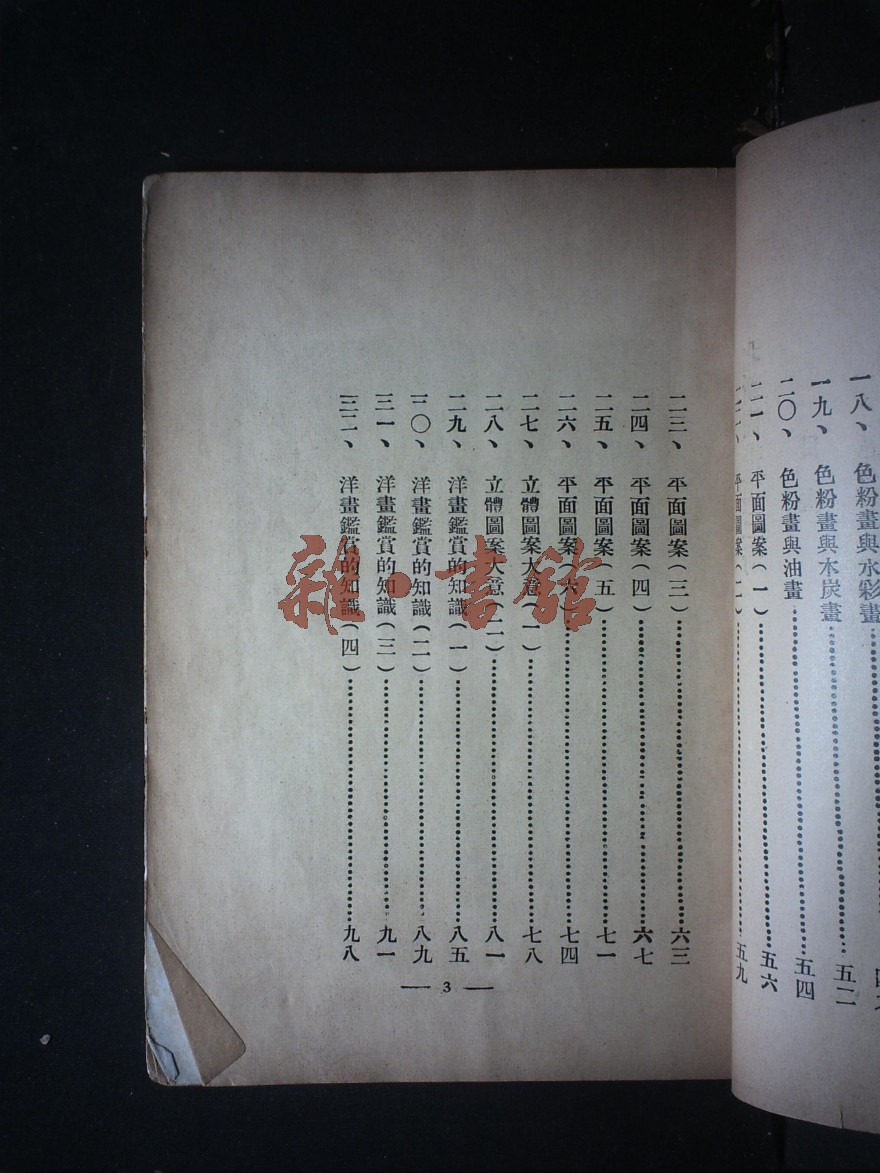 一八、 色粉畫與水彩畫
一九、 色粉畫與木炭畫………………五二
二〇、 色粉畫與油畫………………五四
二一、 平面圖案(一)………………五六
二二、 平面圖案(二)………………五九
二三、 平面圖案(三)………………六三
二四、 平面圖案(四)………………六七
二五、 平面圖案(五)………………七一
二六、 平面圖案(六)………………七四
二七、 立體圖案大意(一)………………七八
二八、 立體圖案大意(二)………………八一
二九、 洋畫鑑賞的知識(一)………………八五
三〇、 洋畫鑑賞的知識(二)………………八九
三一、 洋畫鑑賞的知識(三)………………九一
三二、 洋畫鑑賞的知識(四)………………九八
— 3 —
雜·書館